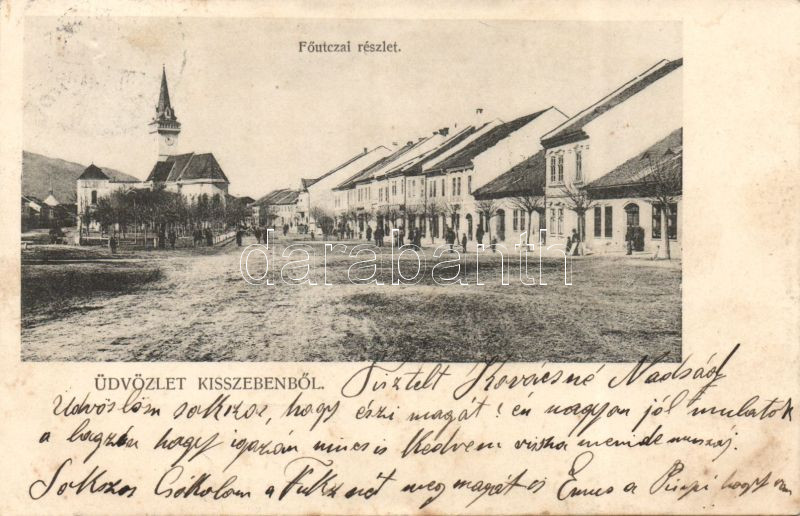 Főutczai részlet.
darabanth
ÜDVÖZLET KISSZEBENBŐL.
Tisztelt Kovácsné Nadság
Üdvöslöm sokszor, hogy észi magát! én nagyon jól mulatok
a hogy igazán nincs is Kedvem vissza menni de muszáj.
Sokszor Csókolom a nét meg magát is Emus a Pinpi